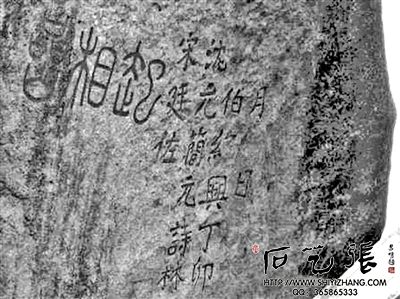 月日
伯紹興丁卯
沈元簡元詳林
宋廷佐
相
張艺石
WWW.SHIYIZHANG.COM
QQ:365865333